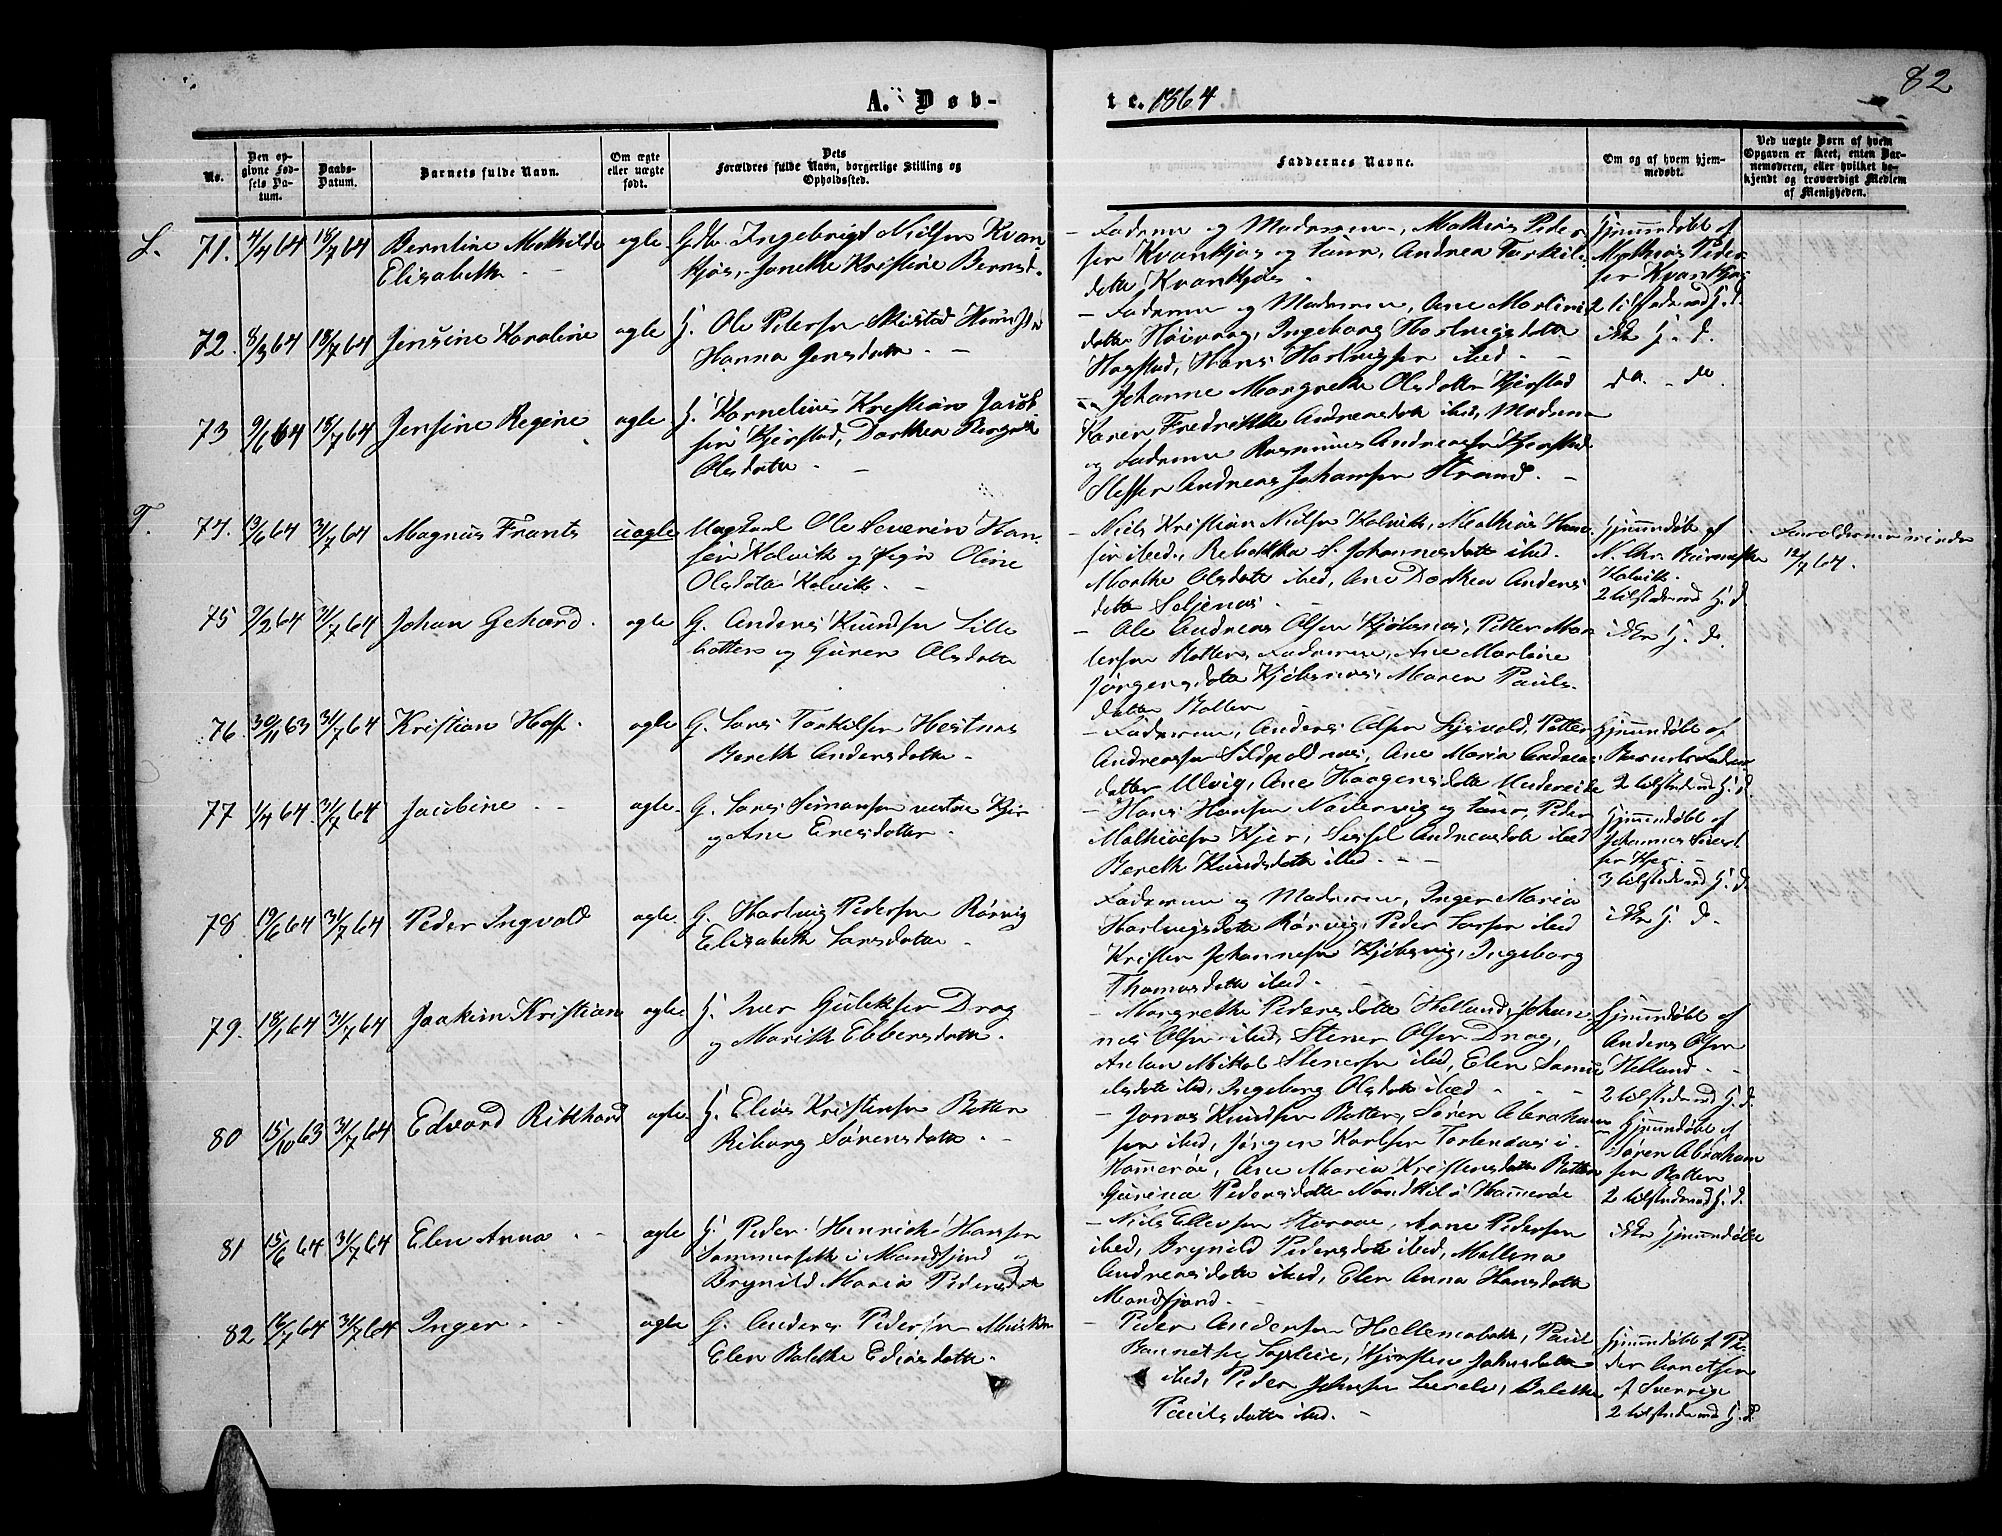 82
A. Døb-
te. 1864
No.
Den op-
givne Fød-
sels Da-
tum.
Daabs-
Datum.
Barnets fulde Navn.
Om ægte
eller uægte
født.
Dets
Forældres fulde Navn, borgerlige Stilling og
Opholdssted.
Faddernes Navne.
Om og af hvem hjem-
medøbt.
Ved uægte Børn af hvem
Opgaven er skeet, enten Bar-
nemoderen, eller hvilket be-
kjendt og troværdigt Medlem
af Menigheden.
L. 71. 4/4 64 18/7 64 Berntine Mathilde ægte Ingebrigt Nilsen Kvan-
Elisabeth kjøs, Janethe Kristine Bernts d.
Faderen og Moderen, Mathias Peder
sen Kvankjøs og Andrea Torkils
datter Kvankjøs
Hjemmedøbt af
Mathias Peder
sen Kvankjøs
2 tilstede ved H. d.
72. 8/3 64 18/7 64 Jensine Karoline ægte G. Ole Petersen
Hanna Jensdatter
Faderen og Moderen, Ane Martins
datter Høivaag, Ingeborg Hartvigsdatter
Hagstad, Hans Hartvigsen ibid.
ikke H. d.
73 9/6 64 18/7 64 Jensine Regine ægte G. Kornelius Kristian Jacob
sen Kjerstad, Dorthea
Olsdatter
Johanne Margrethe Olsdatter Kjerstad
Karen Fredrikke Andreasdatter ibid, Moderen
og Faderen Rasmus Andreassen Kjerstad
Andreas Johansen Strand.
do. - do.
T. 74. 13/6 64 31/7 64 Magnus Frants uægte Ungkarl Ole Severin Han-
sen Kalvik og Pige Oline
Olsdatter Kalvik.
Niels Kristian Nilsen Kalvik, Mathias Han
sen ibid, Rebekka S. Johannesdatter ibid.
Marthe Olsdatter ibid, Ane Dorthea Anders
datter Seljenæs.
Hjemmedøbt af
N. Chr.
Kalvik.
2 tilstede ved H. d.
12/7 64.
75 9/2 64 31/7 64 Johan Gehard ægte G. Anders Knudsen Lille
batten og Guren Olsdatter
Ole Andreas Olsen Kjøbsnæs, Petter Mor
tensen Botten, Faderen, Ane Martine
Jørgensdatter Kjøbsnæs, Maren Pauls-
datter Botten
ikke H. d.
76. 30/11 63 31/7 64 Kristian Hoff ægte G. Lars Torkilsen Hestnæs
Bereth Andersdatter
Faderen, Anders Olsen, Petter
Andreassen Sildpolnæs, Ane Maria Andreas
datter Ulvig, Ane Haagensdatter
Hjemmedøbt af
Barnets Fader
2 tilstede ved H. d.
77 1/4 64 31/7 64 Jacobine ægte. G. Lars Simonsen vestre Kjær
og Ane Enesdatter
Hans Hansen og Peder
Mathiasen Kjær, Sissel Andreasdatter ibid
Bereth Knudsdatter ibid.
Hjemmedøbt af
Johannes Sivert
sen Kjær
3 tilstede ved H. d.
78. 19/6 64 31/7 64 Peder Ingvald ægte G. Hartvig Pedersen Rørvig
Elizabeth Larsdatter
Faderen og Moderen, Inger Maria
Hartvigsdatter Rørvig, Peder Larsen ibid
Krister Johannesen Kjøbsvig, Ingeborg
Thomasdatter ibid.
ikke H. d.
79. 18/1 64 31/7 64 Joakim Kristian ægte G. Iver Guleksen Drag
og Marith Ebbersdatter.
Margrethe Pedersdatter Helland, Johan
nes Olsen ibid, Stener Olsen Drag,
Mikal Stenersen ibid, Elen Samu
elsdatter ibid, Ingeborg Olsdatter ibid
Hjemmedøbt af
Anders Olsen
Helland
2 tilstede ved H. d.
80 15/10 63 31/7 64 Edvard Rikhard ægte G. Elias Kristensen Botten
Riborg Sørensdatter
Jonas Knudsen Botten, Søren Abraham
sen ibid, Jørgen Karlsen i
Hammerøe, Ane Maria Kristensdatter Botten
Gurina Pedersdatter i Hammerøe
Hjemmedøbt af
Søren Abraham
sen Botten
2 tilstede ved H. d.
81 15/6 64 31/7 64 Elen Anna ægte G. Peder Hinrich Hansen
Sommersæth i Mandfjord og
Brynild Maria Pedersdatter
Niels Ellevsen Storaae, Arne Pedersen
ibid, Brynild Pedersdatter ibid, Mallena
Andreasdatter ibid, Elen Anna Hansdatter
Mandfjord.
ikke Hjemmedøbt
82 16/7 64 31/7 64 Inger ægte G. Anders Pedersen Musken
Elen Balethe Ediasdatter.
Peder Andersen Hellemobotn, Paul
Kjersten Johnsdatter
ibid, Peder Johnsen Balethe
Paulsdatter ibid.
Hjemmedøbt af Pe-
der
af Sverrige
2 tilstede ved H. d.